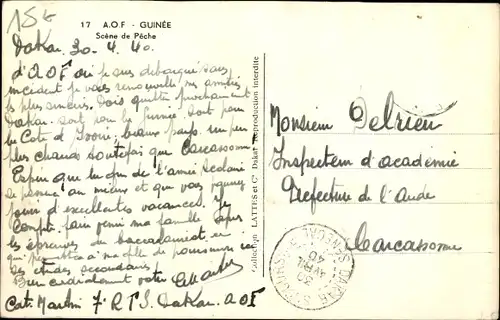 15 F
17 A.O.F - GUINÉE
Scène de Pêche
Dakar 30.4.40
d'AOF où je suis débarqué sans
incident je vous renouvelle mes amitiés
les plus sincères. Dois quitter prochainement
Dakar soit pour la Guinée soit pour
la Côte d'Ivoire; beaux pays un peu
plus chauds toutefois que Carcassonne
Espère que la fin de l'année scolaire
se passera au mieux et que vous passerez
d'excellentes vacances. Je
compte faire venir ma famille après
les épreuves du baccalauréat
qui à ma fille de poursuivre
ses études secondaires.
Bien cordialement votre
Cat. Martin 7e R T S Dakar AOF
Collection LATTES et Cie Dakar Reproduction interdite
Monsieur Delrieu
Inspecteur d'académie
Préfecture de l'Aude
Carcassonne
DAKAR
30
AVRIL
40
SENEGAL